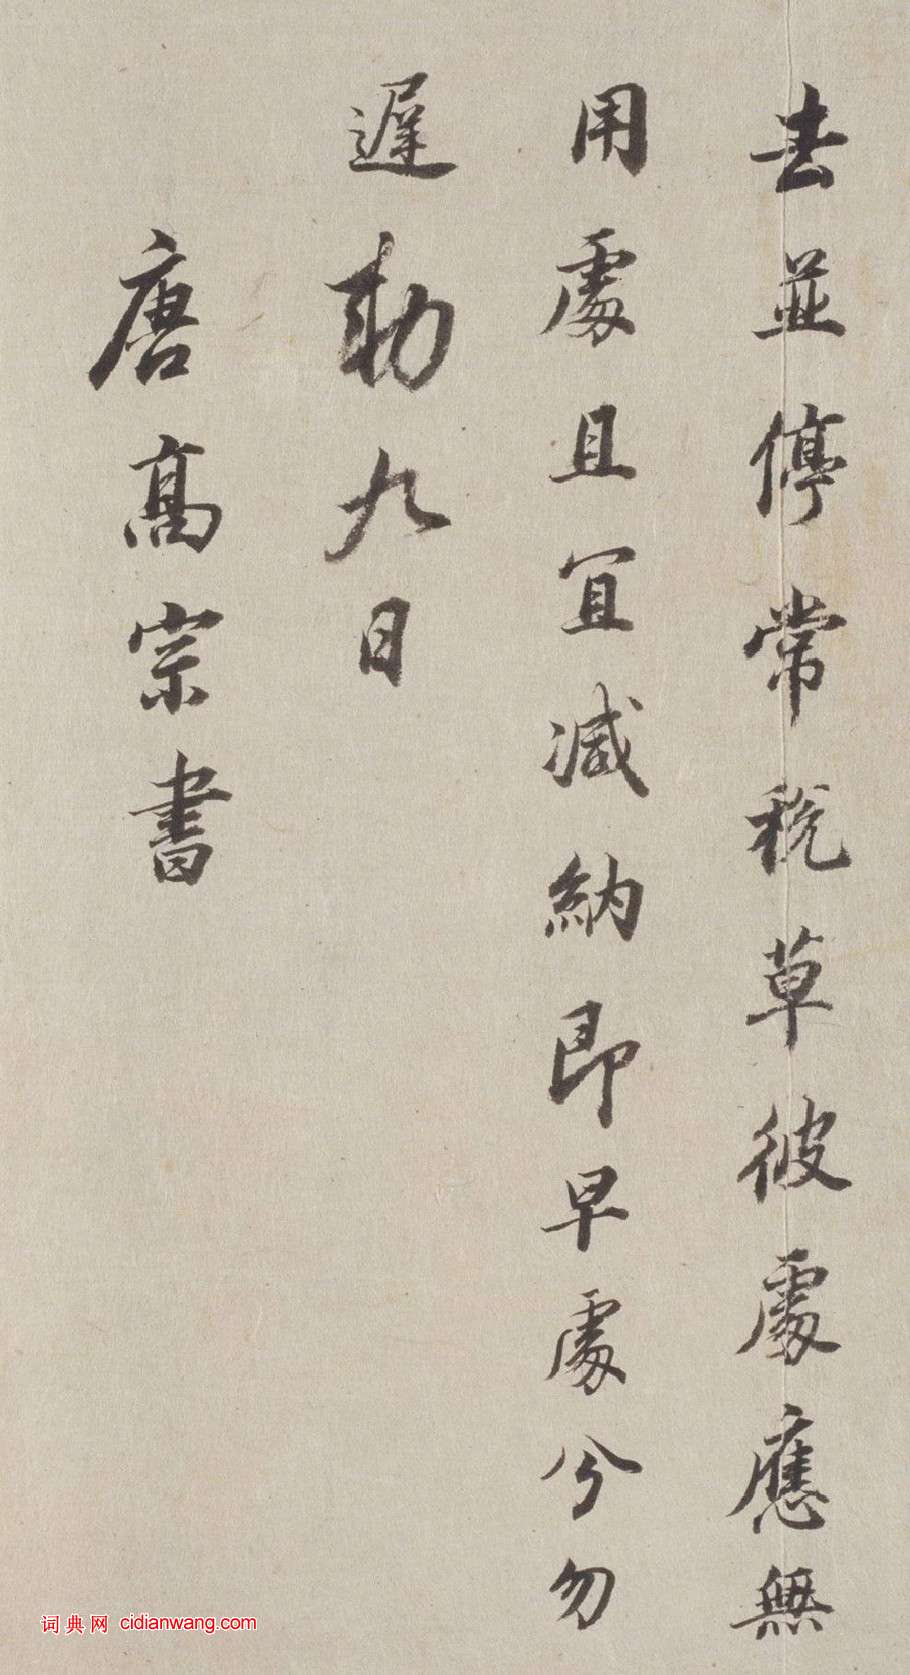 去並停常稅草彼處應無
用處且宜減納即早處分勿
遲勅九日
唐高宗書
词典网 cidianwang.com